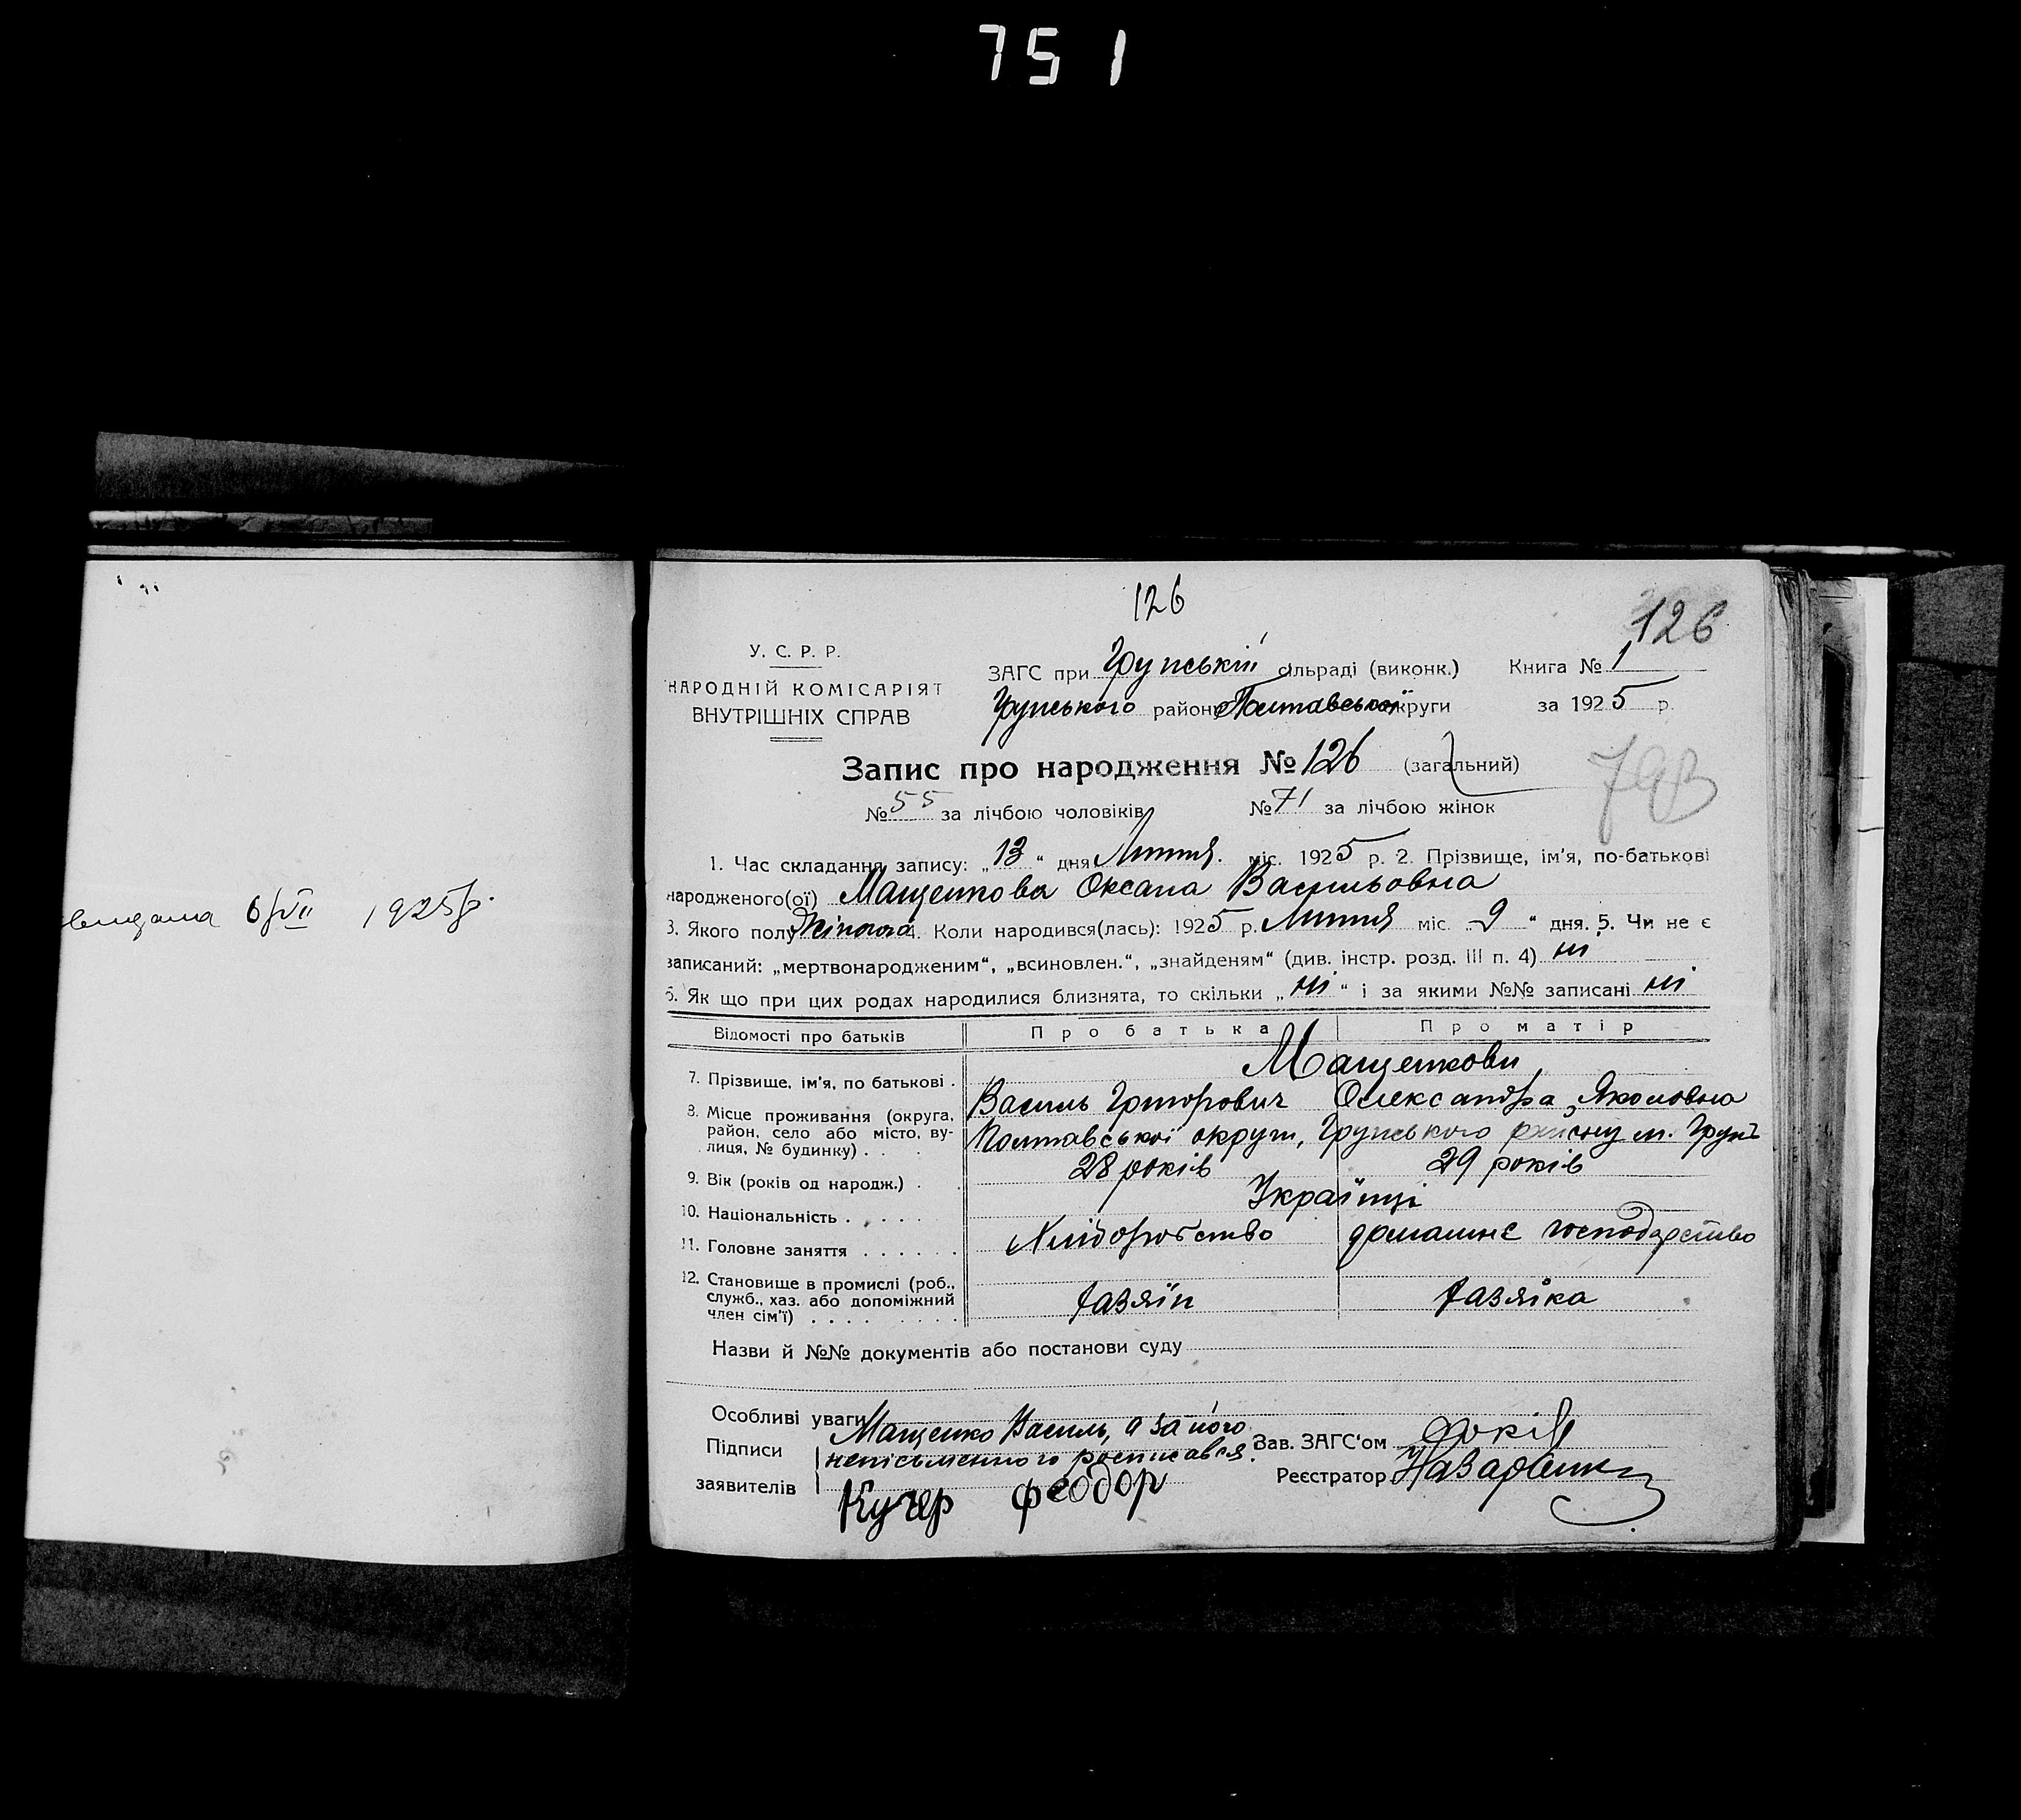 751
видана 6/VII 1925р.
126
126
У. С. Р. Р.
НАРОДНІЙ КОМІСАРІЯТ
ВНУТРІШНІХ СПРАВ
ЗАГС при Грунській сільраді (виконк.) Книга № 1
Грунського району Полтавської округи за 1925 р.
Запис про народження № 126 (загальний)
793
№ 55 за лічбою чоловіків № 71 за лічбою жінок
1. Час складання запису: „13“ дня Липня міс. 1925 р. 2. Прізвище, ім'я, по-батькові
народженого(ої) Мащенкова Оксана Васильовна
3. Якого полу Жіночого 4. Коли народився(лась): 1925 р. Липня міс. „9“ дня. 5. Чи не є
записаний: „мертвонародженим“, „всиновлен.“, „знайденям“ (див. інстр. розд. III п. 4) ні
6. Як що при цих родах народилися близнята, то скільки „ні“ і за якими №№ записані ні
Відомості про батьків Про батька Про матір
7. Прізвище, ім'я, по батькові . Мащенкови
Василь Григорович Олександра Якововна
8. Місце проживання (округа, район, село або місто, вулиця, № будинку) . . . Полтавської округи, Грунського району м. Грунь
9. Вік (років од народж.) . 28 років 29 років
10. Національність . . . . . Українці
11. Головне заняття . . . . . . Хліборобство домашнє господарство
12. Становище в промислі (роб., служб., хаз. або допоміжний член сім'ї) . . . . . . . . хазяїн хазяїка
Назви й №№ документів або постанови суду
Особливі уваги
Підписи заявителів
Мащенко Василь, а за його
неписьменного росписався.
Кучер Феодор
Зав. ЗАГС'ом
Реєстратор Назаренко